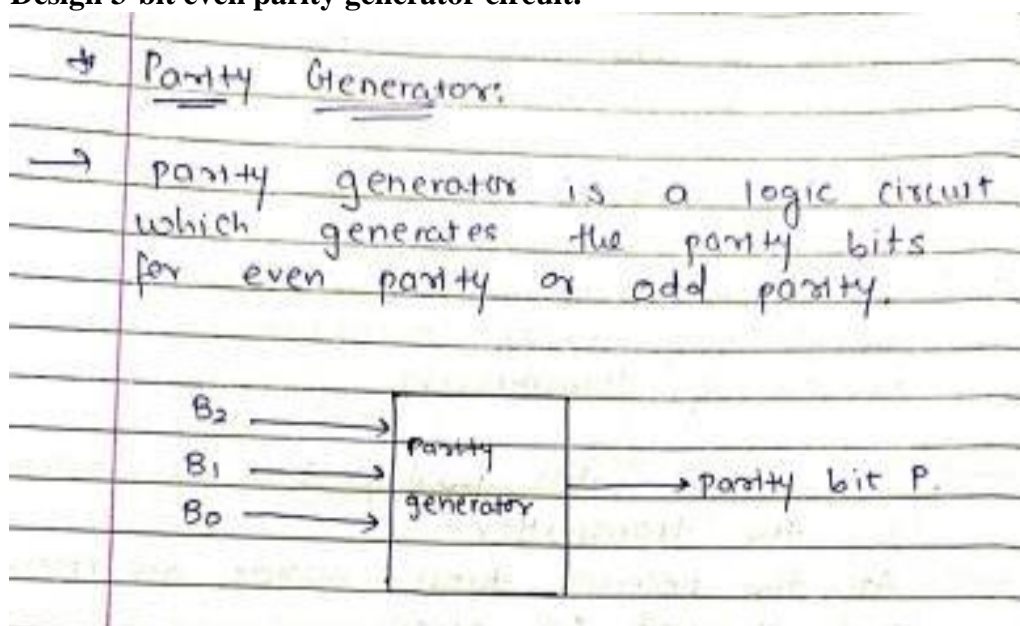 Design 3-bit even parity generator circuit.
* Parity Generator:
→ parity generator is a logic circuit
which generates the parity bits
for even parity or odd parity.
B₂
Parity
B₁
→ parity bit P.
generator
B₀